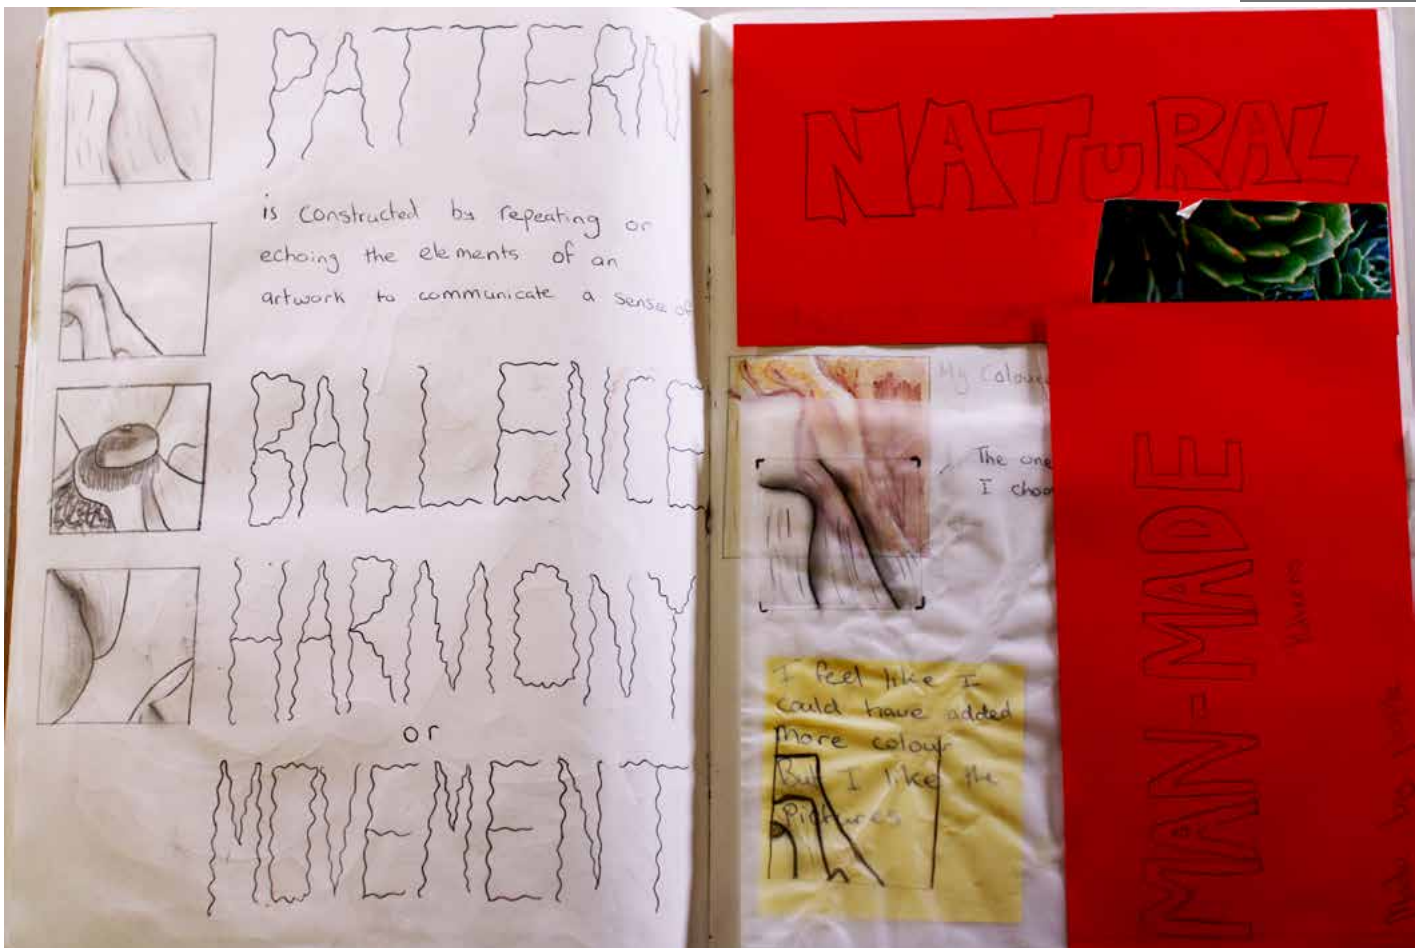 PATTERN
is constructed by repeating or
echoing the elements of an
artwork to communicate a sense of
BALLENCE
HARMONY
or
MOVEMENT
NATURAL
My Coloured
The one
I choo
I feel like I
could have added
more colour
But I like the
Pictures
MAN-MADE